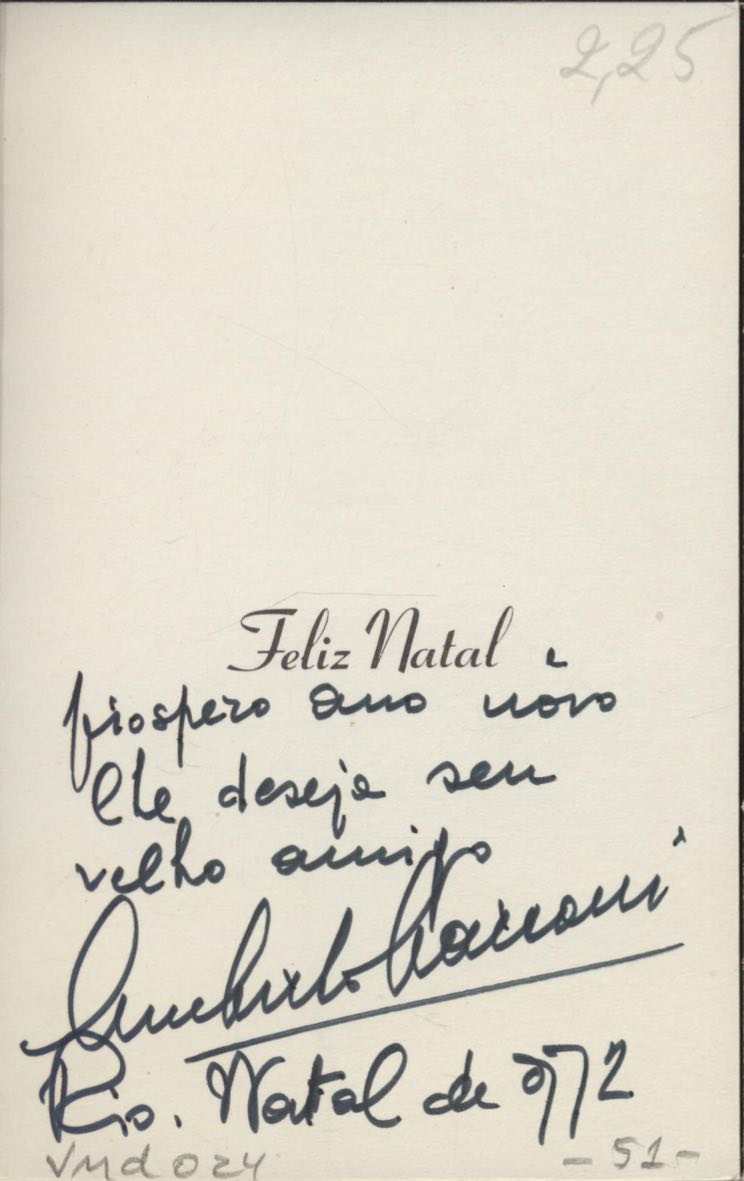 2,25
Feliz Natal
prospero ano nôvo
lhe deseja seu
velho amigo
Umberto
Rio. Natal de 972
VMd024
-51-